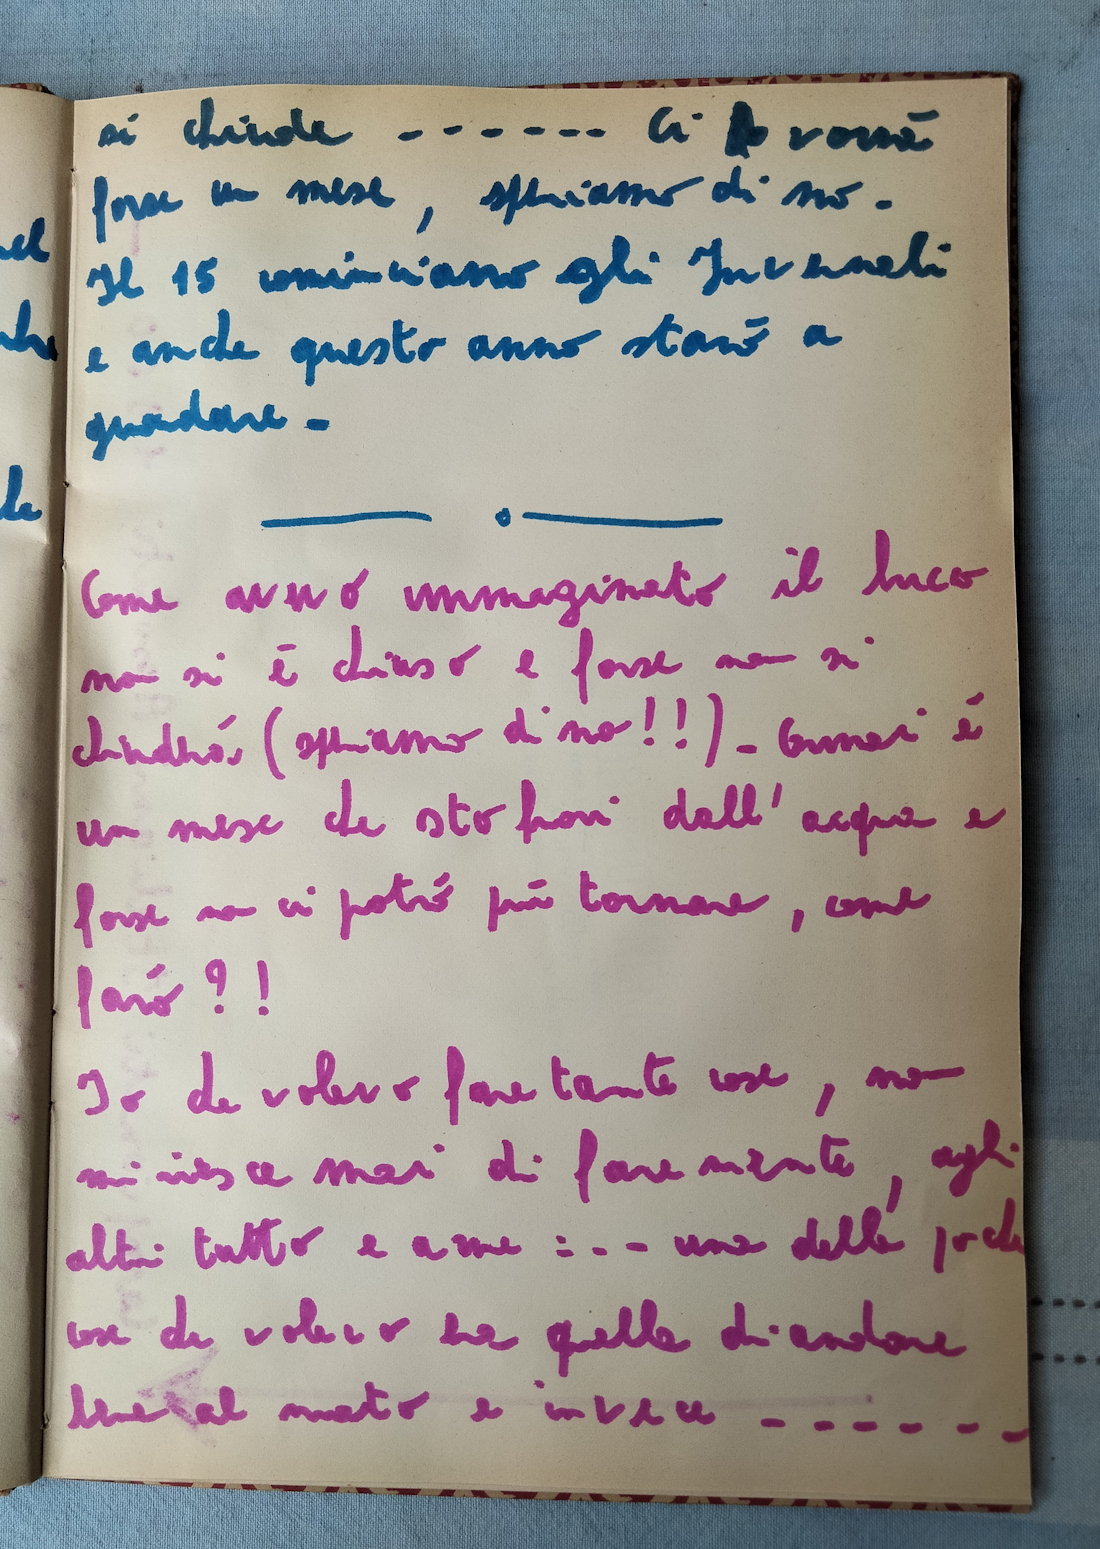 si chiude ------ Ci vorrà
forse un mese, speriamo di no.
Il 15 cominciano gli Invernali
e anche questo anno starò a
guardare -
Come avevo immaginato il buco
non si è chiuso e forse non si
chiuderà (speriamo di no!!) - Ormai è
un mese che sto fuori dall'acqua e
forse non ci potrò più tornare, come
farò?!
Io che volevo fare tante cose, non
mi riesce mai di fare niente, agli
altri tutto e a me :.-- una delle poche
cose che volevo era quella di andare
bene al nuoto e invece ------